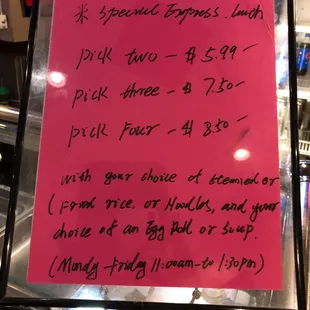 * Special Express. Lunch
pick two - $ 5.99 -
pick three - $ 7.50 -
pick Four - $ 8.50 -
with your choice of Stemied or
( Fried rice. or Noodles, and your
choice of an Egg Roll or Soup.
(Mondy - Friday 11:00am - to 1:30pm)